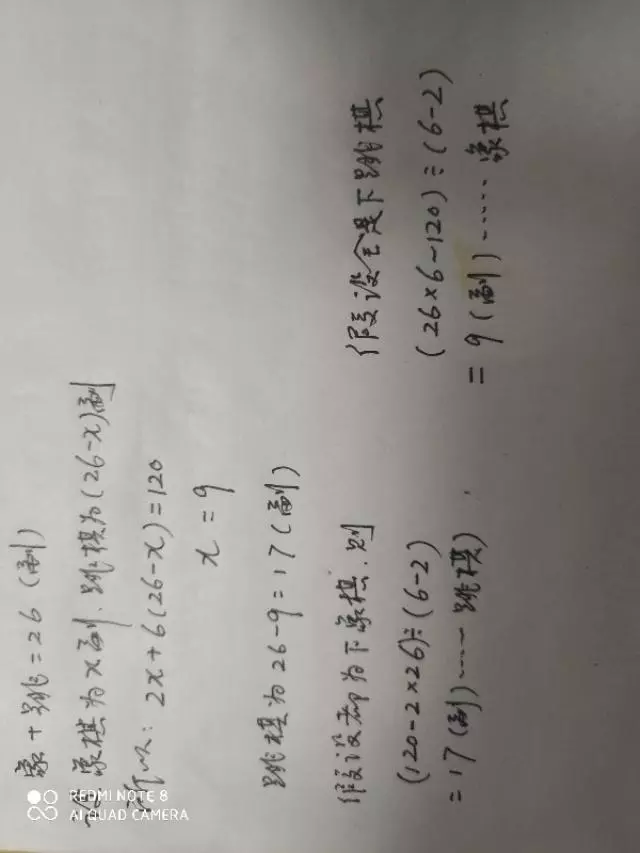 象+跳=26(副)
设象棋为x副,跳棋为(26-x)副
所以:2x+6(26-x)=120
x=9
跳棋为26-9=17(副)
假设都为下象棋.则
(120-2×26)÷(6-2)
=17(副)……跳棋
假设全是下跳棋
(26×6-120)÷(6-2)
=9(副)……象棋
REDMI NOTE 8
AI QUAD CAMERA